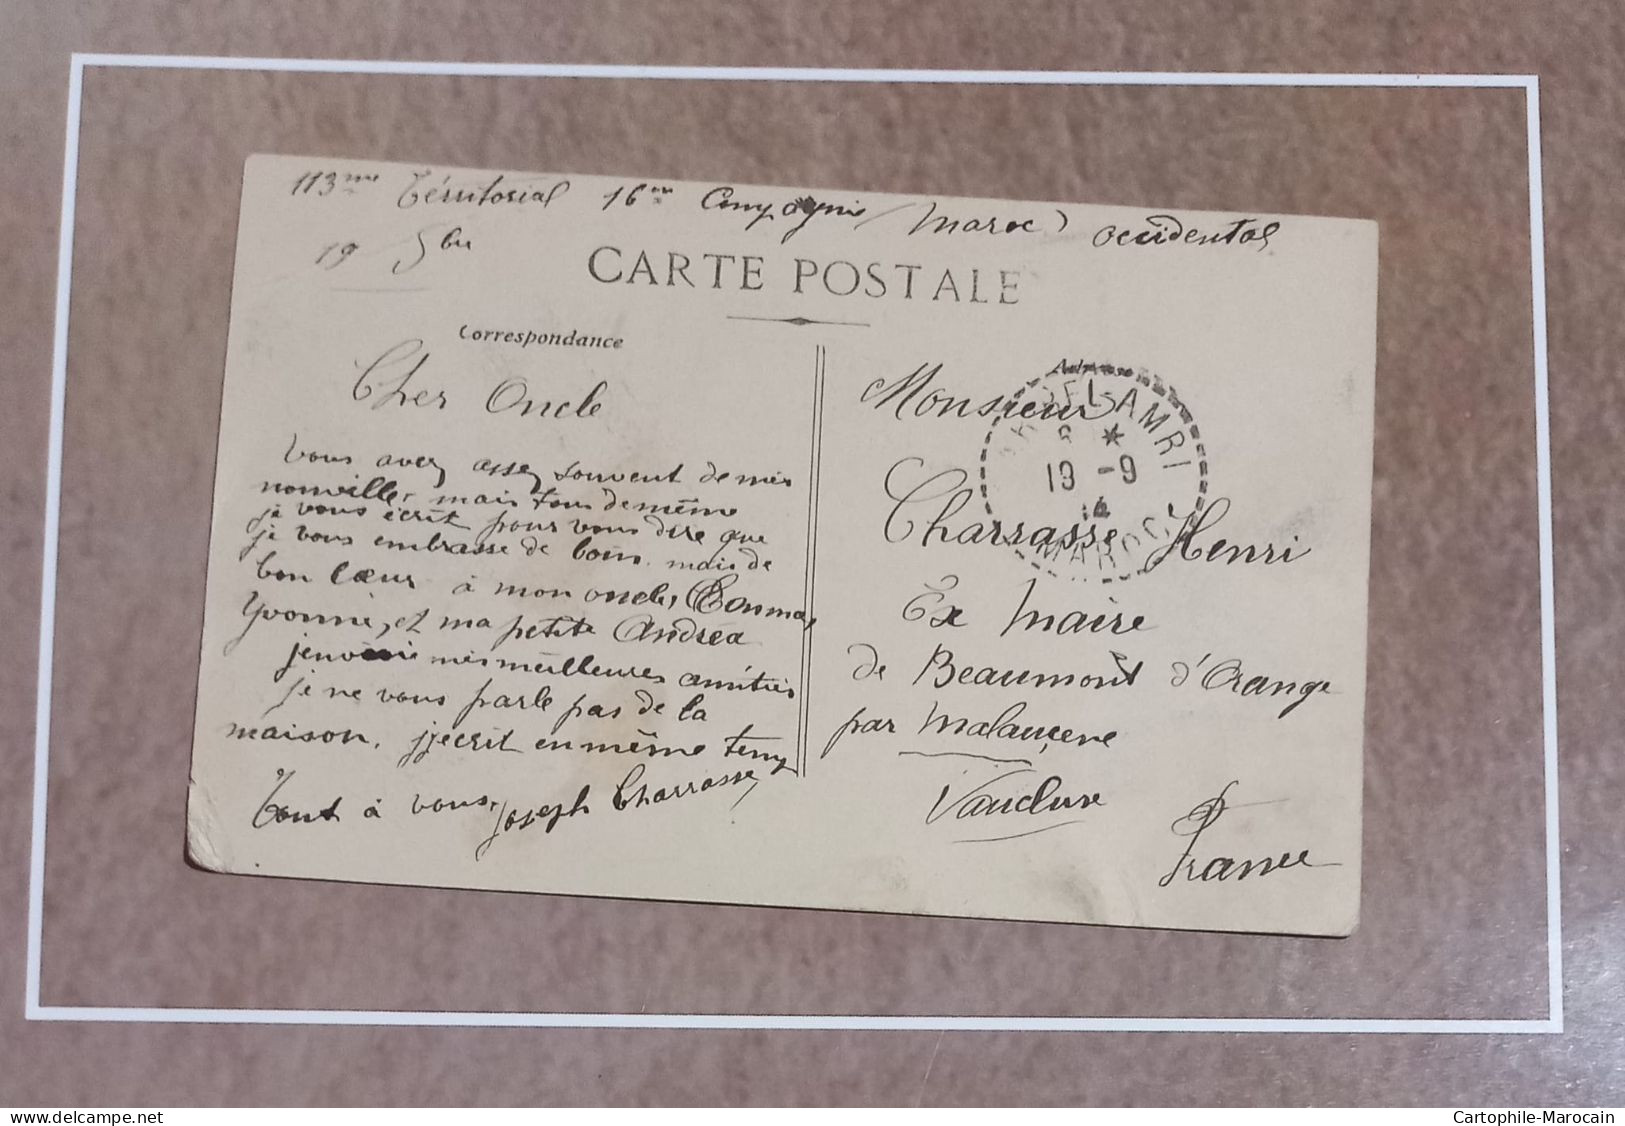 113me Térritorial 16me Compagnie Maroc Occidental
19 Sbre
CARTE POSTALE
Correspondance
Adresse
Cher Oncle
Vous avez assez souvent de mes
nouvelles mais tous de même
je vous écrit pour vous dire que
je vous embrasse de loin. mais de
bon cœur à mon oncle,
Yvonne, et ma petite Andréa
j'envoie mes meilleures amitiés
je ne vous parle pas de la
maison. j'écrit en même temp
Tout à vous,
Joseph Charrasse
Monsieur
Charrasse Henri
Ex Maire
de Beaumont d'Orange
par Malaucene
Vaucluse
France
BEL-AMRI
19 -9
14
MAROC
delcampe.net
Cartophile-Marocain